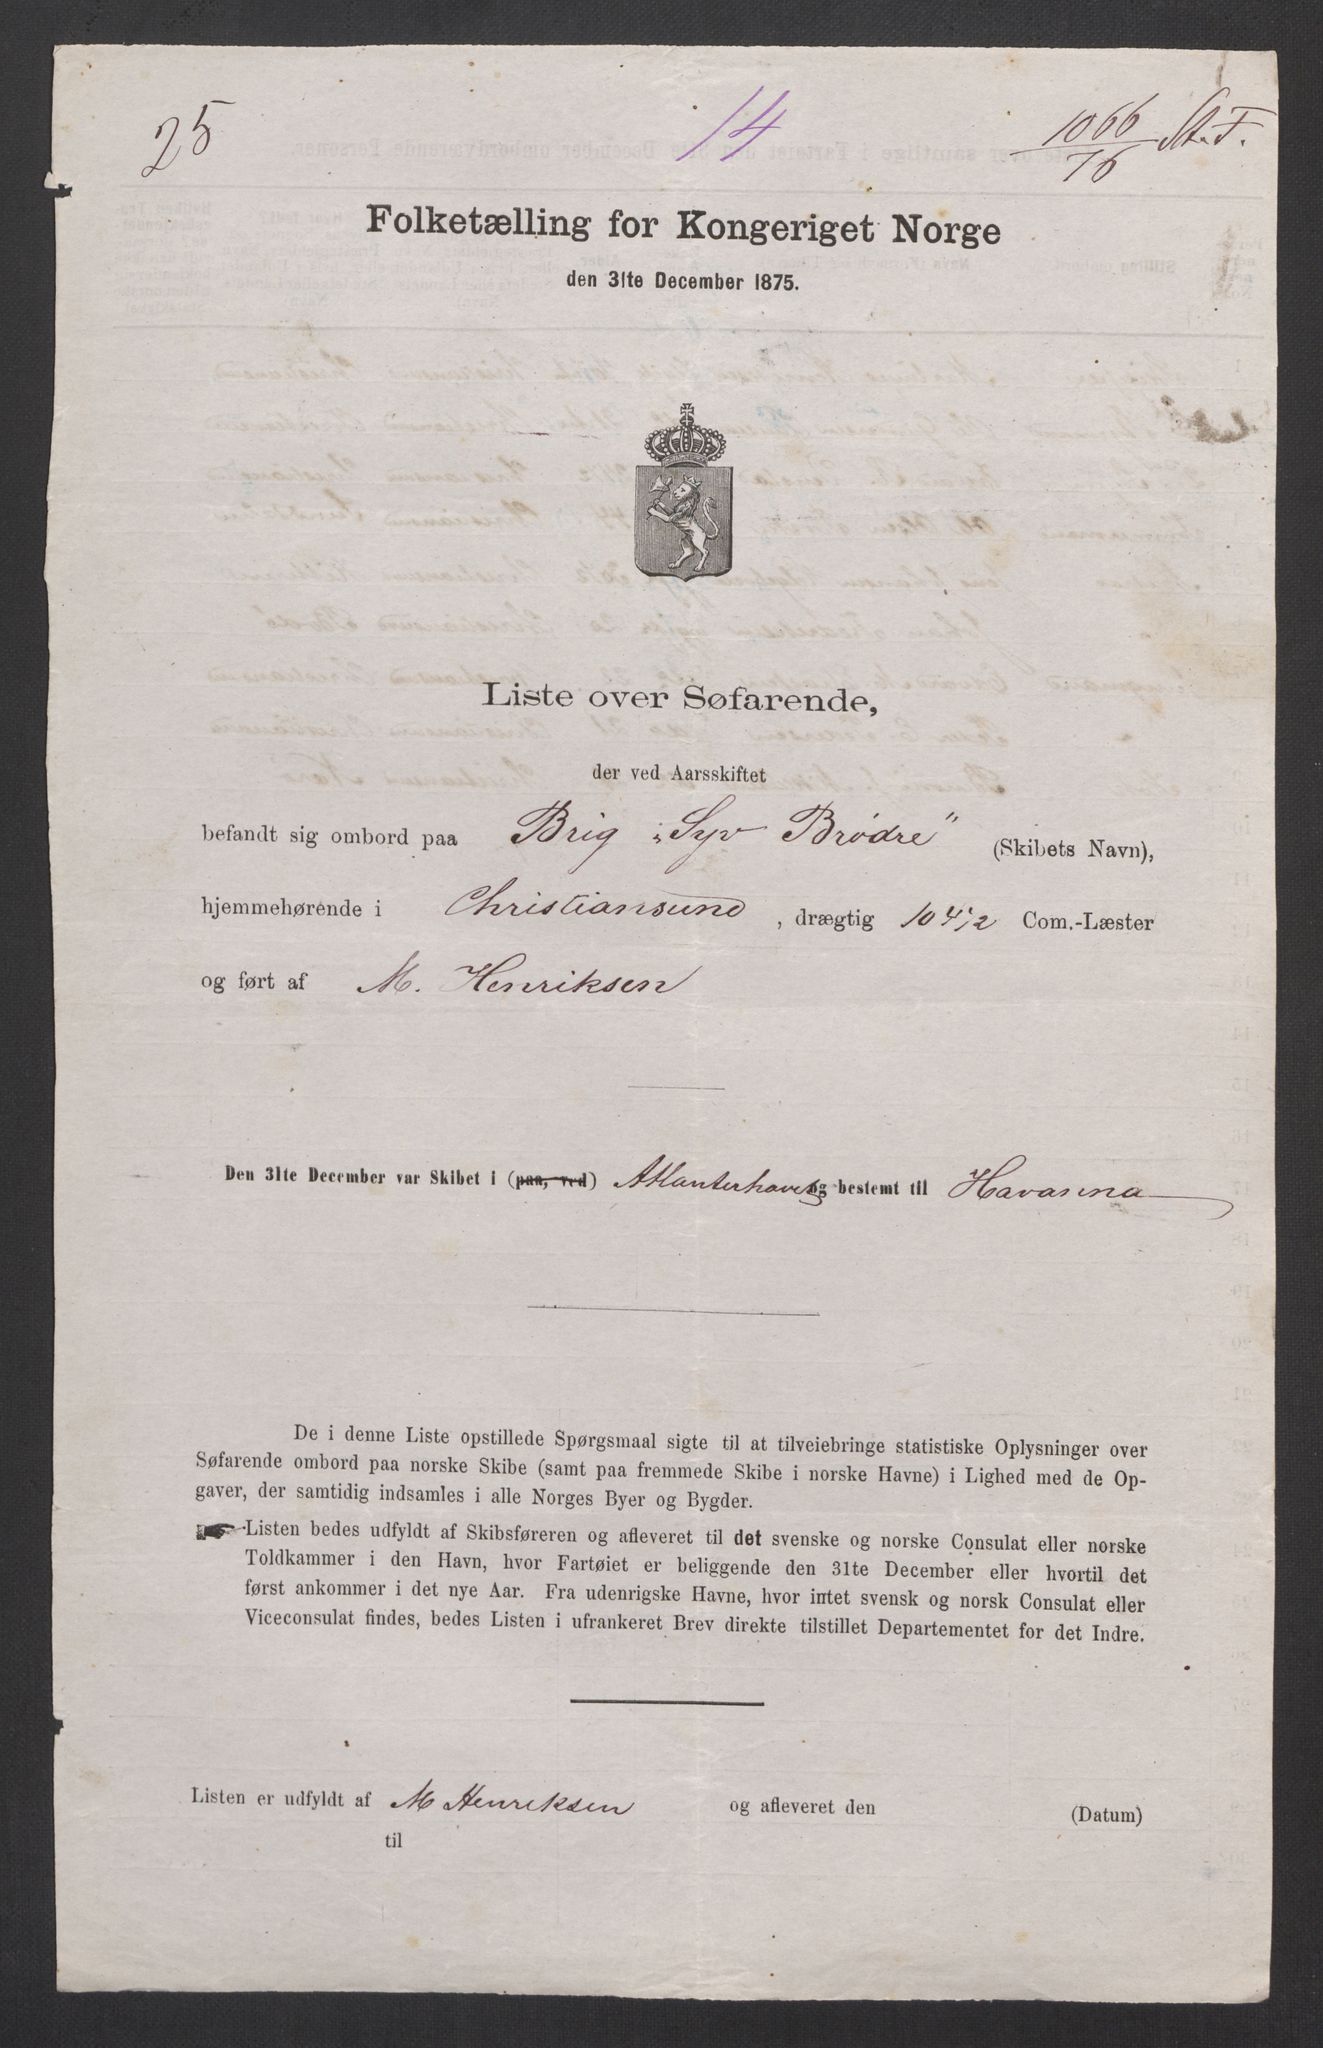 25
14
1066/76 St. F.
Folketælling for Kongeriget Norge
den 31te December 1875.
Liste over Søfarende,
der ved Aarsskiftet
befandt sig ombord paa Brig „Syv Brödre" (Skibets Navn),
hjemmehørende i Christiansund, drægtig 104 1/2 Com.-Læster
og ført af M. Henriksen
Den 31te December var Skibet i (paa, ved) Atlanterhavet og bestemt til Havanna
De i denne Liste opstillede Spørgsmaal sigte til at tilveiebringe statistiske Oplysninger over
Søfarende ombord paa norske Skibe (samt paa fremmede Skibe i norske Havne) i Lighed med de Op-
gaver, der samtidig indsamles i alle Norges Byer og Bygder.
☛ Listen bedes udfyldt af Skibsføreren og afleveret til det svenske og norske Consulat eller norske
Toldkammer i den Havn, hvor Fartøiet er beliggende den 31te December eller hvortil det
først ankommer i det nye Aar. Fra udenrigske Havne, hvor intet svensk og norsk Consulat eller
Viceconsulat findes, bedes Listen i ufrankeret Brev direkte tilstillet Departementet for det Indre.
Listen er udfyldt af M Henriksen og afleveret den (Datum)
til